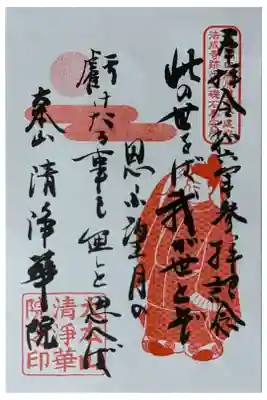 奉拝 令和六年参拝記念
此の世をば我が世とぞ
思ふ望月の
虧けたる事も無しと思へば
大本山 清浄華院
大本山
清浄華
院印